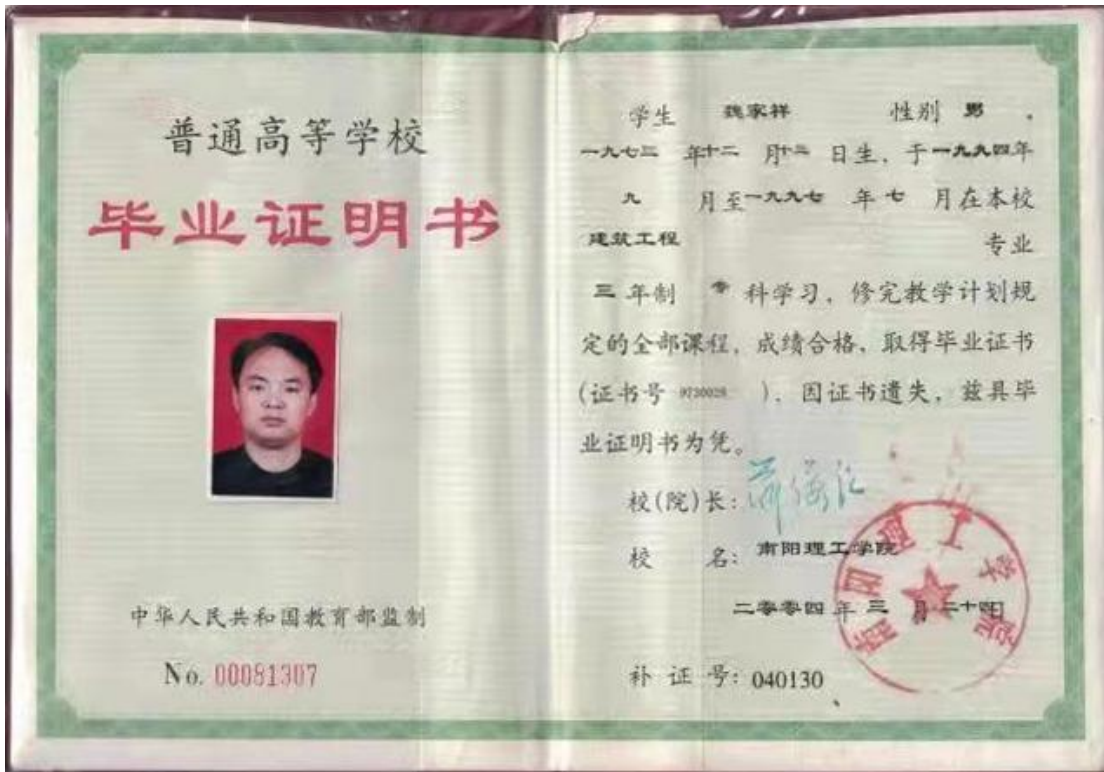 普通高等学校
毕业证明书
中华人民共和国教育部监制
No. 00081307
学生 魏家祥 性别 男 。
一九七三 年十二 月十二 日生，于一九九四年
九 月至一九九七 年 七 月在本校
建筑工程 专业
三 年制 专 科学习，修完教学计划规
定的全部课程，成绩合格，取得毕业证书
(证书号 9730028 )，因证书遗失，兹具毕
业证明书为凭。
校(院)长：
校 名：南阳理工学院
二零零四 年 三 月 二十四日
补 证 号：040130
南阳理工学院